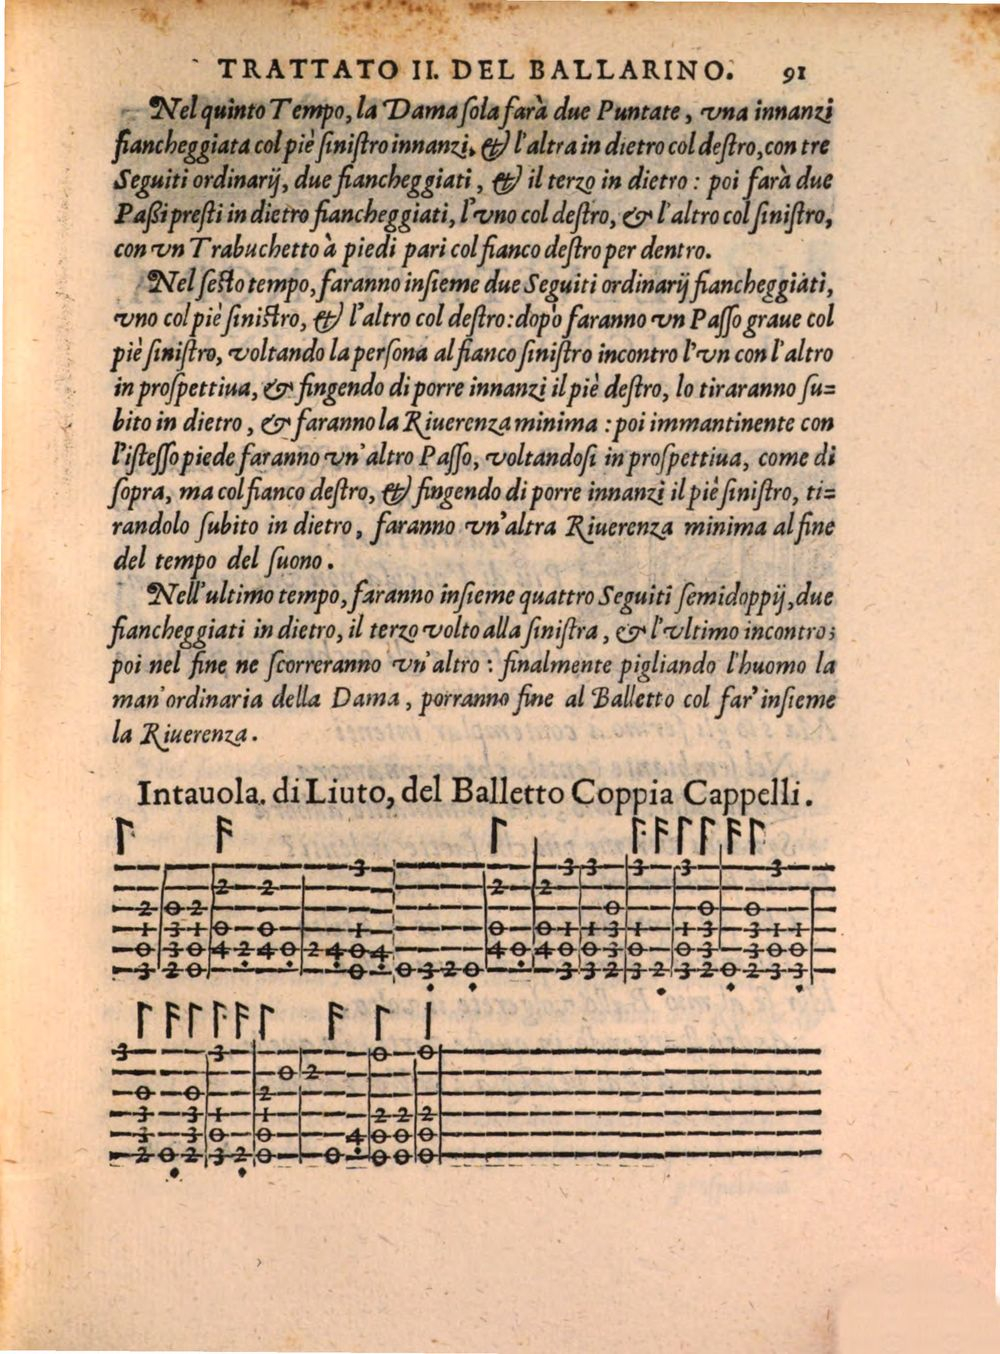 TRATTATO II. DEL BALLARINO. 91
Nel quinto Tempo, la Dama ſola farà due Puntate, vna innanzi
fiancheggiata col piè ſiniſtro innanzi, & l'altra in dietro col deſtro, con tre
Seguiti ordinarij, due fiancheggiati, & il terzo in dietro: poi farà due
Paßi preſti in dietro fiancheggiati, l'vno col deſtro, & l'altro col ſiniſtro,
con vn Trabuchetto à piedi pari col fianco deſtro per dentro.
Nel ſeſto tempo, faranno inſieme due Seguiti ordinarij fiancheggiati,
vno col piè ſiniſtro, & l'altro col deſtro: dopò faranno vn Paſſo graue col
piè ſiniſtro, voltando la perſona al fianco ſiniſtro incontro l'vn con l'altro
in proſpettiua, & fingendo di porre innanzi il piè deſtro, lo tiraranno ſu=
bito in dietro, & faranno la Riuerenza minima: poi immantinente con
l'iſteſſo piede faranno vn' altro Paſſo, voltandoſi in proſpettiua, come di
ſopra, ma col fianco deſtro, & fingendo di porre innanzi il piè ſiniſtro, ti=
randolo ſubito in dietro, faranno vn'altra Riuerenza minima al fine
del tempo del ſuono.
Nell'ultimo tempo, faranno inſieme quattro Seguiti ſemidoppij, due
fiancheggiati in dietro, il terzo volto alla ſiniſtra, & l'vltimo incontro;
poi nel fine ne ſcorreranno vn' altro: finalmente pigliando l'huomo la
man' ordinaria della Dama, porranno fine al Balletto col far' inſieme
la Riuerenza.
Intauola. di Liuto, del Balletto Coppia Cappelli.